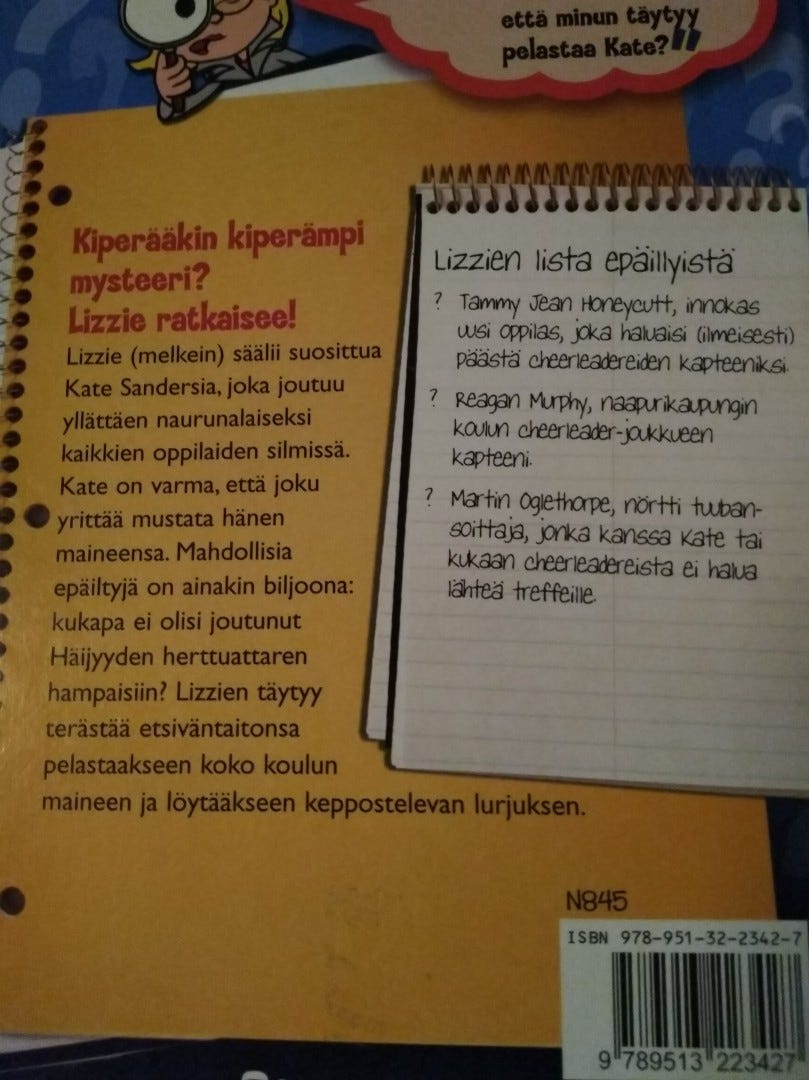 että minun täytyy
pelastaa Kate?"
Kiperääkin kiperämpi
mysteeri?
Lizzie ratkaisee!
Lizzie (melkein) säälii suosittua
Kate Sandersia, joka joutuu
yllättäen naurunalaiseksi
kaikkien oppilaiden silmissä.
Kate on varma, että joku
yrittää mustata hänen
maineensa. Mahdollisia
epäiltyjä on ainakin biljoona:
kukapa ei olisi joutunut
Häijyyden herttuattaren
hampaisiin? Lizzien täytyy
terästää etsiväntaitonsa
pelastaakseen koko koulun
maineen ja löytääkseen keppostelevan lurjuksen.
Lizzien lista epäillyistä
? Tammy Jean Honeycutt, innokas
uusi oppilas, joka haluaisi (ilmeisesti)
päästä cheerleadereiden kapteeniksi.
? Reagan Murphy, naapurikaupungin
koulun cheerleader-joukkueen
kapteeni.
? Martin Oglethorpe, nörtti tuuban-
soittaja, jonka kanssa Kate tai
kukaan cheerleadereista ei halua
lähteä treffeille.
N845
ISBN 978-951-32-2342-7
9 789513 223427